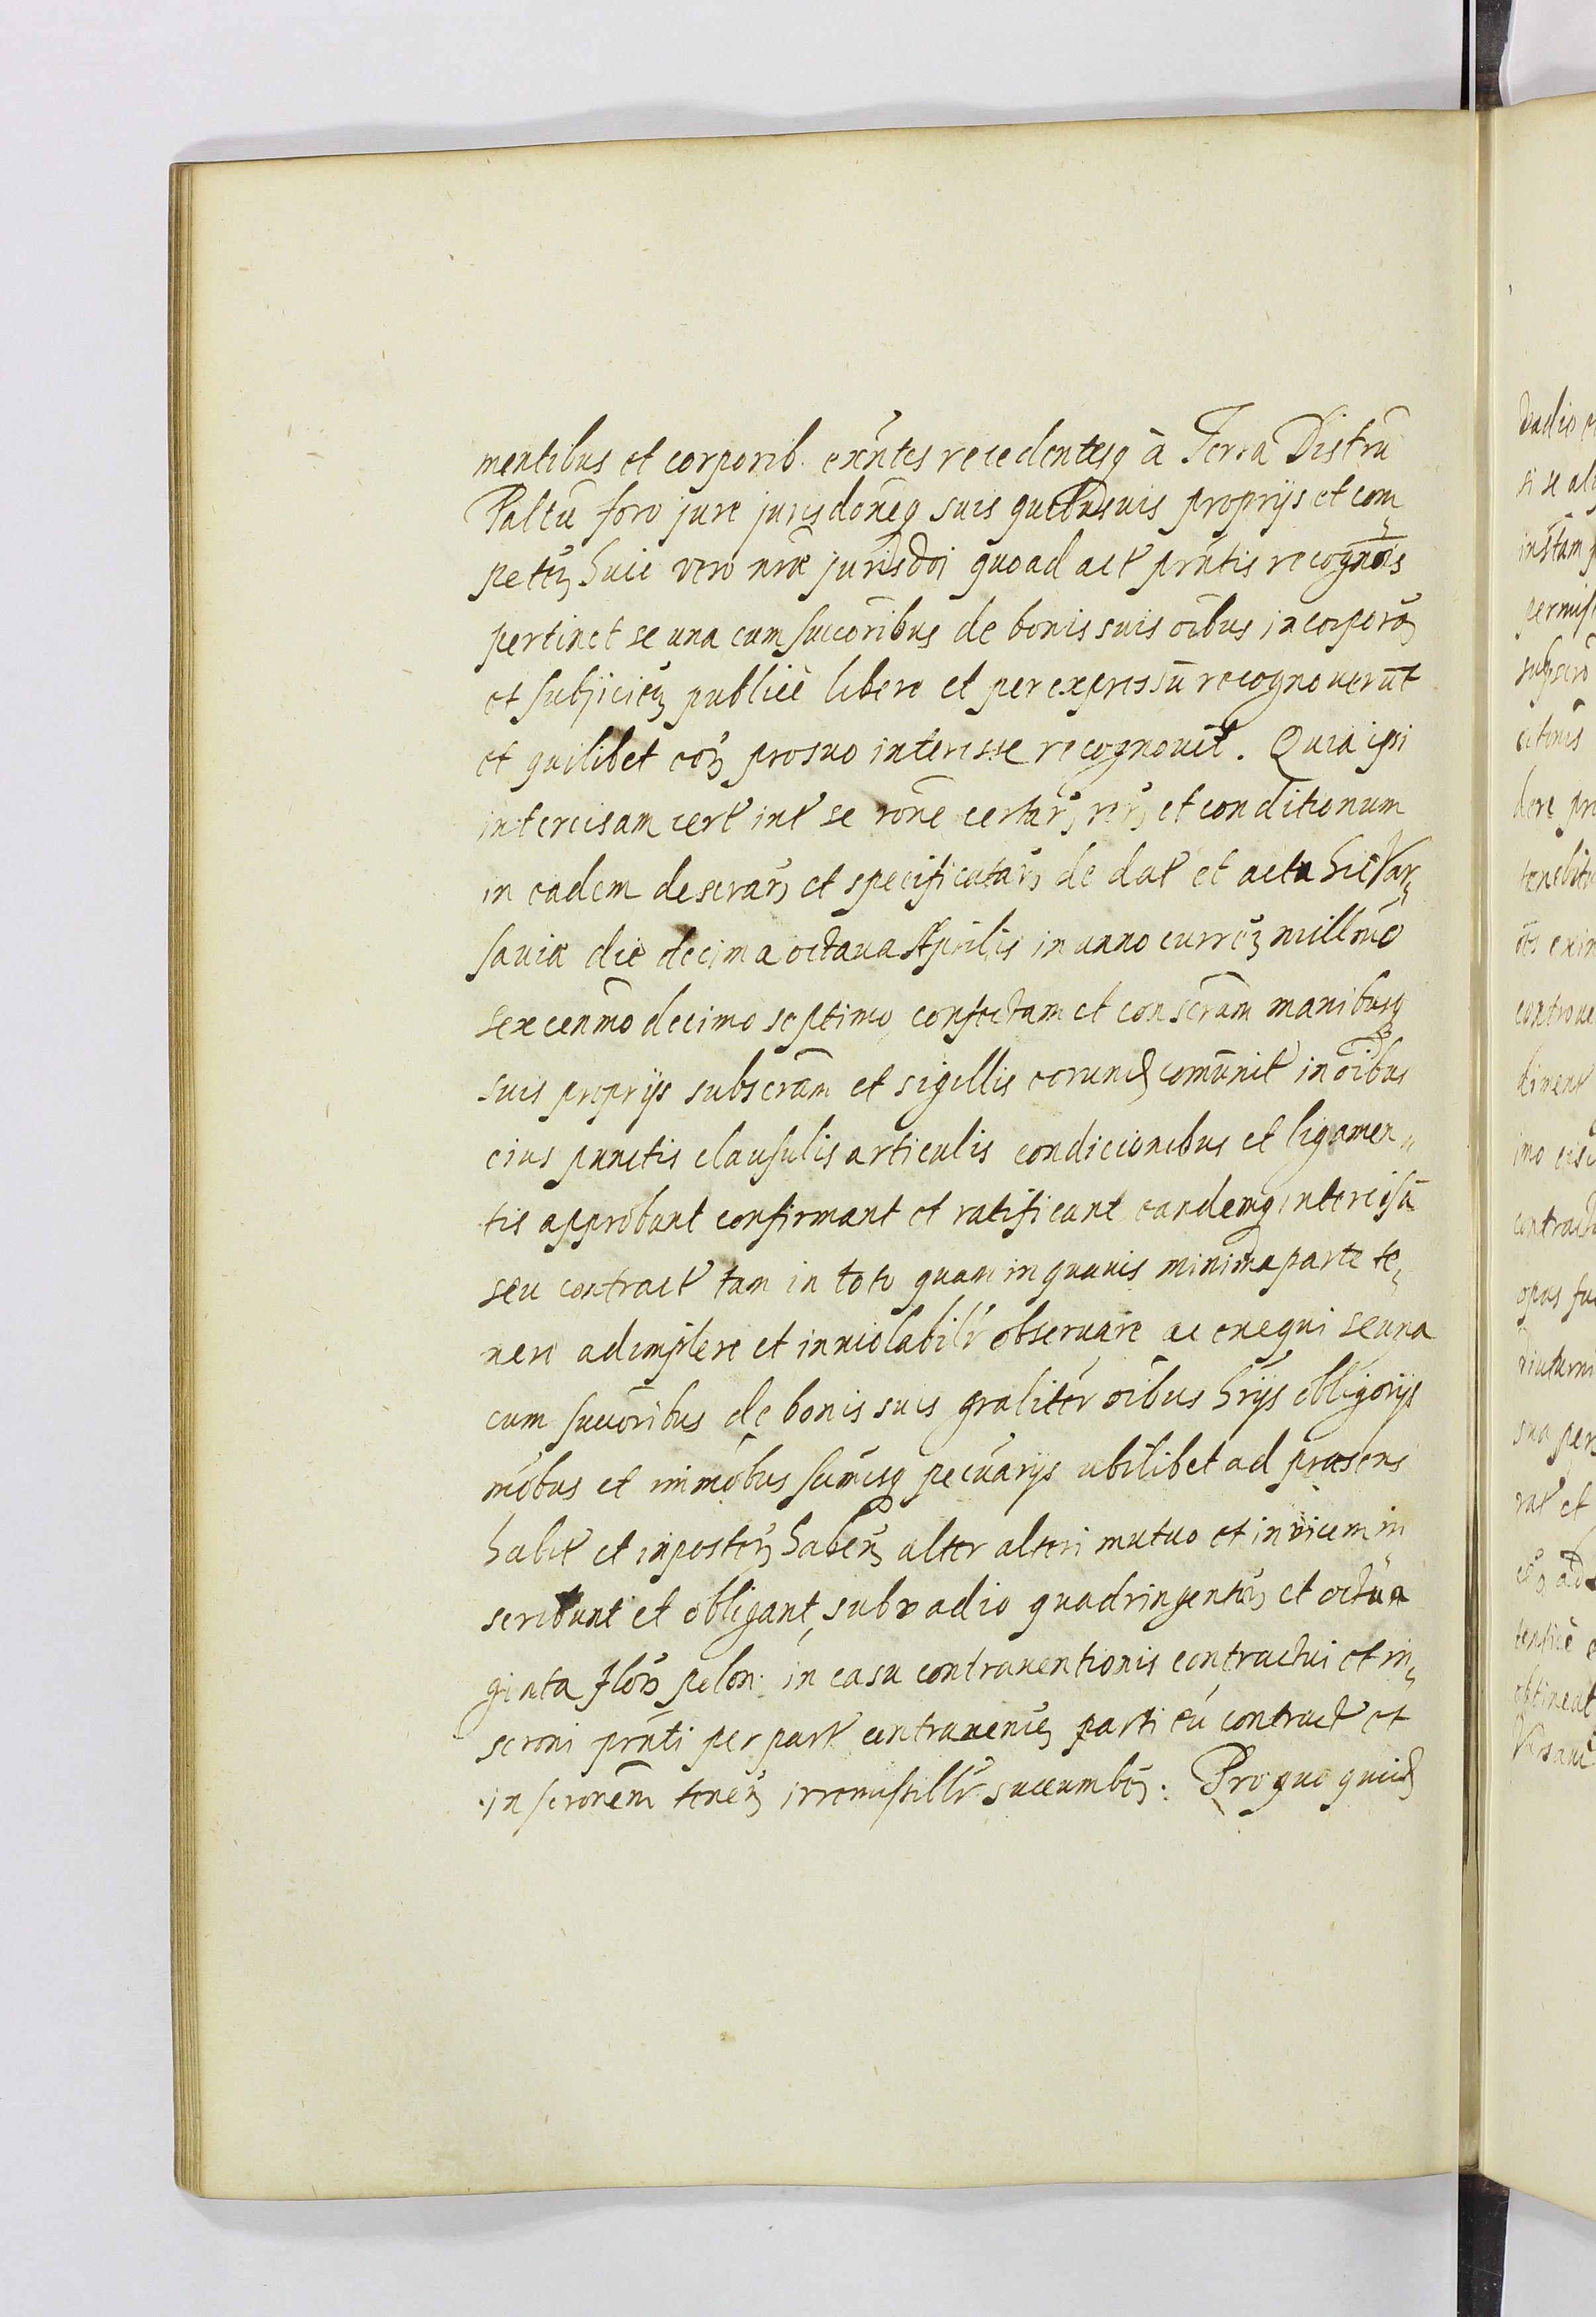 mentibus et corporib. exñtes recedentesq à Terra Distrũ
Paltũ foro jure jurisdõneq suis quibusuis proprijs et com„
peteñ huic vero nrae jurisdõi quoad act prñtis recognõis
pertinet se una cum succõribus de bonis suis oĩbus incorporañ
et subjicieñ publicè libere et per expressũ recognouerũt
et quilibet eoŕ pro suo interesse recognouit. Quia ipsi
intercisam cert int se rõne certaŕ reŕ et conditionum
in eadem descraŕ et specificataŕ de dat et acta hic Var„
sauiae die decima octaua Aprilis in anno curreñ millmõ
sexcenmõ decimo septimo confectam et conscrãm manibusq
suis proprijs subscrãm et sigillis eorund comũnit in oĩbus
eius punctis clausulis articulis condicionibus et ligamen„
tis approbant confirmant et ratificant eandemq intercisã
seu contract tam in toto quam in quauis minima parte te„
nere adimplere et inuiolabilr obseruare ac exequi se una
cum succõribus de bonis suis gralitér oĩbus hrijs obligorijs
mobus et immobus sumisq pecuarijs ubilibet ad praesens
habit et in posteŕ habeñ alter alteri mutuo et in vicem in„
scribunt et obligant, sub vadio quadringentoŕ et octua
ginta floŕ polon. in casu contrauentionis contractui et in„
scroni prñti per part contrauenieñ parti eũ contract et
inscronẽm teneñ irremissibilr succumbeñ. Pro quo quid

vadio
si se al
instam
permis
subscro
dere pr
tenebit
controue
diment
contractu
opus fu
diuturni
sua per
rat et
obtineat
Varsaui